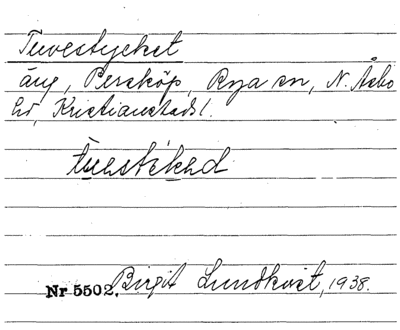 Tuvestycket
äng, Perstorp, Rya sn, N. Åsbo
hd, Kristianstads l.
Nr 5502. Birgit Lundkvist, 1938.